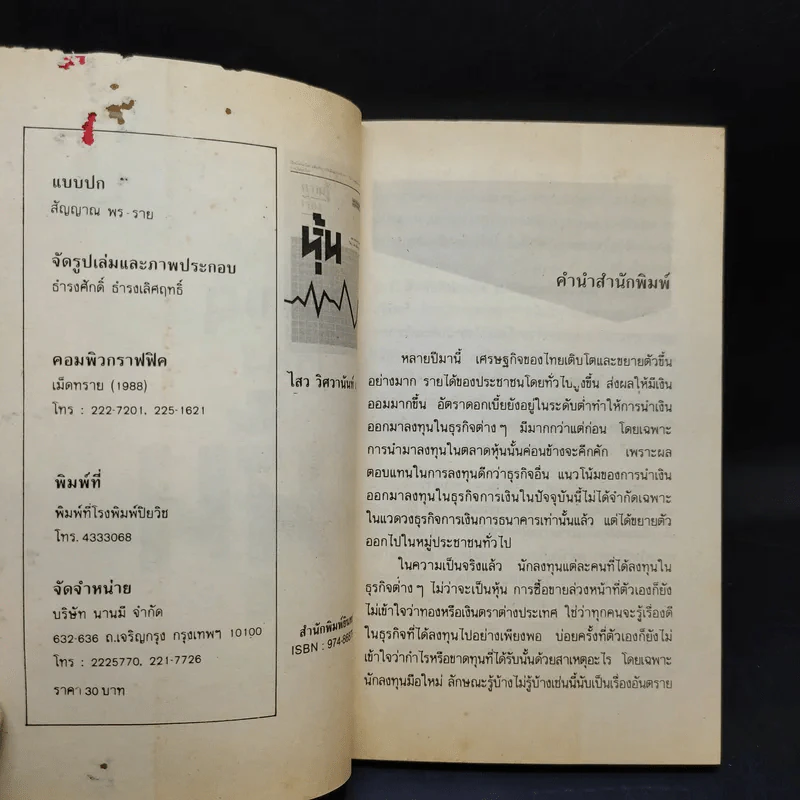 แบบปก
สัญญาณ พร-ราย
จัดรูปเล่มและภาพประกอบ
ธำรงศักดิ์ ธำรงเลิศฤทธิ์
คอมพิวกราฟฟิค
เม็ดทราย (1988)
โทร : 222-7201, 225-1621
พิมพ์ที่
พิมพ์ที่โรงพิมพ์ปิยวิช
โทร. 4333068
จัดจำหน่าย
บริษัท นานมี จำกัด
632-636 ถ.เจริญกรุง กรุงเทพฯ 10100
โทร : 2225770, 221-7726
ราคา 30 บาท
หุ้น
ไสว วิศวานันท์
สำนักพิมพ์
ISBN : 974-
คำนำสำนักพิมพ์
หลายปีมานี้ เศรษฐกิจของไทยเติบโตและขยายตัวขึ้น
อย่างมาก รายได้ของประชาชนโดยทั่วไปสูงขึ้น ส่งผลให้มีเงิน
ออมมากขึ้น อัตราดอกเบี้ยยังอยู่ในระดับต่ำทำให้การนำเงิน
ออกมาลงทุนในธุรกิจต่างๆ มีมากกว่าแต่ก่อน โดยเฉพาะ
การนำมาลงทุนในตลาดหุ้นนั้นค่อนข้างจะคึกคัก เพราะผล
ตอบแทนในการลงทุนดีกว่าธุรกิจอื่น แนวโน้มของการนำเงิน
ออกมาลงทุนในธุรกิจการเงินในปัจจุบันนี้ไม่ได้จำกัดเฉพาะ
ในแวดวงธุรกิจการเงินการธนาคารเท่านั้นแล้ว แต่ได้ขยายตัว
ออกไปในหมู่ประชาชนทั่วไป
ในความเป็นจริงแล้ว นักลงทุนแต่ละคนที่ได้ลงทุนใน
ธุรกิจต่างๆ ไม่ว่าจะเป็นหุ้น การซื้อขายล่วงหน้าที่ตัวเองก็ยัง
ไม่เข้าใจว่าทองหรือเงินตราต่างประเทศ ใช่ว่าทุกคนจะรู้เรื่องดี
ในธุรกิจที่ได้ลงทุนไปอย่างเพียงพอ บ่อยครั้งที่ตัวเองก็ยังไม่
เข้าใจว่ากำไรหรือขาดทุนที่ได้รับนั้นด้วยสาเหตุอะไร โดยเฉพาะ
นักลงทุนมือใหม่ ลักษณะรู้บ้างไม่รู้บ้างเช่นนี้นับเป็นเรื่องอันตราย